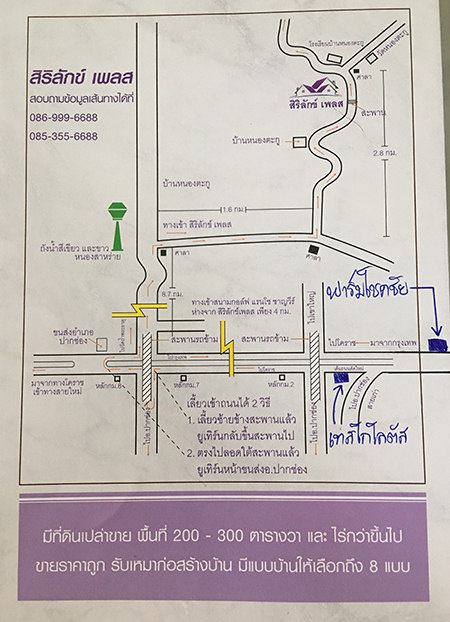 สิริลักข์ เพลส
สอบถามข้อมูลเส้นทางได้ที่
086-999-6688
085-355-6688
โรงเรียนบ้านหนองตะกู
วัดหนองตะกู
ศาลา
สิริลักข์ เพลส
สะพาน
บ้านหนองตะกู
2.8 กม.
บ้านหนองตะกู
1.6 กม.
ทางเข้า สิริลักข์ เพลส
ถังน้ำสีเขียว และขาว
หนองสาหร่าย
ศาลา
ศาลา
8.7 กม.
ทางเข้าสนามกอล์ฟ แรนโช ชาญวีร์
ห่างจาก สิริลักข์เพลส เพียง 4 กม.
ไปเขาใหญ่
ฟาร์มโชคชัย
ขนส่งอำเภอ
ปากช่อง
สะพานรถข้าม
สะพานรถข้าม
ไปโคราช
มาจากกรุงเทพ
ไปกรุงเทพ
ไปโคราช
มาจากทางโคราช
เข้าทางสายใหม่
หลักกม.8
หลักกม.7
หลักกม.2
ไปอ.ปากช่อง
ไปอ.ปากช่อง
ไปอ.ปากช่อง
สายเก่า
เทสโก้โลตัส
เลี้ยวเข้าถนนได้ 2 วิธี
1. เลี้ยวซ้ายข้างสะพานแล้ว
ยูเทิร์นกลับขึ้นสะพานไป
2. ตรงไปลอดใต้สะพานแล้ว
ยูเทิร์นหน้าขนส่งอ.ปากช่อง
มีที่ดินเปล่าขาย พื้นที่ 200 - 300 ตารางวา และ ไร่กว่าขึ้นไป
ขายราคาถูก รับเหมาก่อสร้างบ้าน มีแบบบ้านให้เลือกถึง 8 แบบ